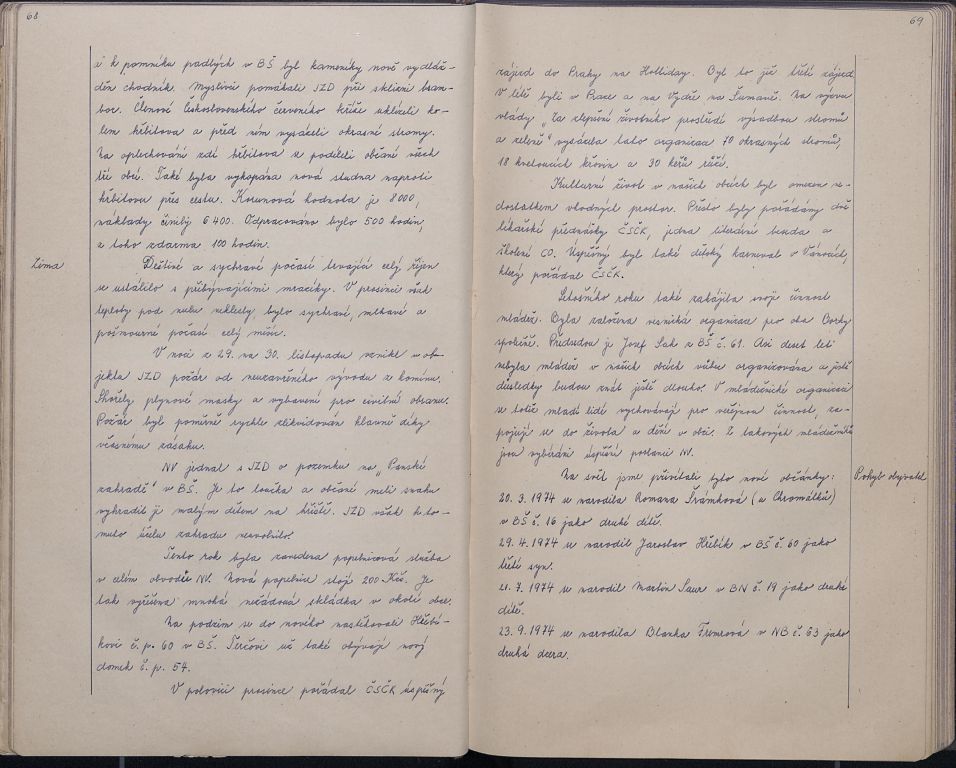 68
i k pomníku padlých v BŠ byl kameníky nově vydláž-
děn chodník. Myslivci pomáhali JZD při sklizni bram-
bor. Členové Československého červeného kříže uklízeli ko-
lem hřbitova a před ním vysázeli okrasné stromy.
Na oplechování zdí hřbitova se podíleli občané všech
tří obcí. Také byla vykopána nová studna naproti
hřbitovu přes cestu. Korunová hodnota je 8000,
náklady činily 6400. Odpracováno bylo 500 hodin,
z toho zdarma 100 hodin.
Zima
Deštivé a sychravé počasí trvající celý říjen
se ustálilo s přibývajícími mrazíky. V prosinci však
teploty pod nulu neklesly, bylo sychravé, mlhavé a
pošmourné počasí celý měsíc.
V noci z 29. na 30. listopadu vznikl v ob-
jektu JZD požár od neuzavřeného vývodu z komínu.
Shořely plynové masky a vybavení pro civilní obranu.
Požár byl poměrně rychle zlikvidován hlavně díky
včasnému zásahu.
NV jednal s JZD o pozemku na „Panské
zahradě" v BŠ. Je to loučka a občané měli snahu
vyhradit ji malým dětem na hřiště. JZD však k to-
muto účelu zahradu neuvolnilo.
Tento rok byla zavedena popelnicová služba
v celém obvodě NV. Nová popelnice stojí 200 Kčs. Je
tak vyřešena mnohá nežádoucí skládka v okolí obce.
Na podzim se do nového nastěhovali Hřebí-
kovi č.p. 60 v BŠ. Terčovi už také obývají nový
domek č.p. 54.
V polovici prosince pořádal ČSČK úspěšný
69
zájezd do Prahy na Holliday. Byl to již třetí zájezd
V létě byli v Praze a na Vydře na Šumavě. Na výzvu
vlády „Za zlepšení životního prostředí výsadbou stromů
a zeleně" vysázela tato organizace 70 okrasných stromů,
18 kvetoucích křovin a 30 keřů růží.
Kulturní život v našich obcích byl omezen ne-
dostatkem vhodných prostor. Přesto byly pořádány dvě
lékařské přednášky ČSČK, jedna literární beseda a
školení CO. Úspěšný byl také dětský karneval o Vánocích,
který pořádal ČSČK.
Letošního roku také zahájila svoji činnost
mládež. Byla založena vesnická organizace pro oba Borky
společně. Předsedou je Josef Sak z BŠ č. 61. Asi deset let
nebyla mládež v našich obcích vůbec organizována a jistě
důsledky budou znát ještě dlouho. V mládežnické organizaci
se totiž mladí lidé vychovávají pro veřejnou činnost, za-
pojují se do života a dění v obci. Z takových mládežníků
jsou vybíráni úspěšní poslanci NV.
Pohyb obyvatel
Na svět jsme přivítali tyto nové občánky:
20. 3. 1974 se narodila Romana Šrámková (u Chromálků)
v BŠ č. 16 jako druhé dítě.
29. 4. 1974 se narodil Jaroslav Hřebík v BŠ č. 60 jako
třetí syn.
21. 7. 1974 se narodil Martin Saur v BN č. 19 jako druhé
dítě.
23. 9. 1974 se narodila Blanka Fremrová v NB č. 63 jako
druhá dcera.